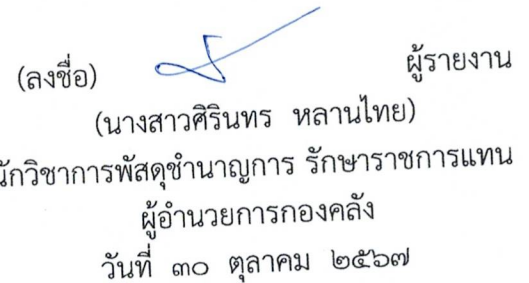 (ลงชื่อ) ผู้รายงาน
(นางสาวศิรินทร หลานไทย)
นักวิชาการพัสดุชำนาญการ รักษาราชการแทน
ผู้อำนวยการกองคลัง
วันที่ ๓๐ ตุลาคม ๒๕๖๗